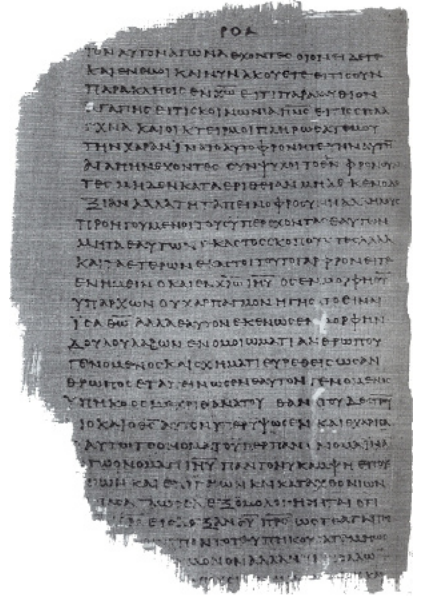 ΡΟΑ
ΤΟΝ ΑΥΤΟΝ ΑΓΩΝΑ ΕΧΟΝΤΕϹ ΟΙΟΝ ΕΙΔΕΤΕ
ΚΑΙ ΕΝ ΕΜΟΙ ΚΑΙ ΝΥΝ ΑΚΟΥΕΤΕ ΕΙ ΤΙϹ ΟΥΝ
ΠΑΡΑΚΛΗϹΙϹ ΕΝ ΧΡΩ ΕΙ ΤΙ ΠΑΡΑΜΥΘΙΟΝ
ΑΓΑΠΗϹ ΕΙ ΤΙϹ ΚΟΙΝΩΝΙΑ ΠΝϹ ΕΙ ΤΙϹ ϹΠΛΑ
ΓΧΝΑ ΚΑΙ ΟΙΚΤΕΙΡΜΟΙ ΠΛΗΡΩϹΑΤΕ ΜΟΥ
ΤΗΝ ΧΑΡΑΝ ΙΝΑ ΤΟ ΑΥΤΟ ΦΡΟΝΗΤΕ ΤΗΝ ΑΥΤΗ
ΑΓΑΠΗΝ ΕΧΟΝΤΕϹ ϹΥΝΨΥΧΟΙ ΤΟ ΕΝ ΦΡΟΝΟΥΝ
ΤΕϹ ΜΗΔΕΝ ΚΑΤΑ ΕΡΙΘΕΙΑΝ ΜΗΔΕ ΚΕΝΟΔΟ
ΞΙΑΝ ΑΛΛΑ ΤΗ ΤΑΠΕΙΝΟΦΡΟϹΥΝΗ ΑΛΛΗΛΟΥϹ
ΠΡΟΗΓΟΥΜΕΝΟΙ ΤΟΥϹ ΥΠΕΡΕΧΟΝΤΑϹ ΕΑΥΤΩΝ
ΜΗ ΤΑ ΕΑΥΤΩΝ ΕΚΑϹΤΟϹ ϹΚΟΠΟΥΝΤΕϹ ΑΛΛΑ
ΚΑΙ ΤΑ ΕΤΕΡΩΝ ΕΚΑϹΤΟΙ ΤΟΥΤΟ ΓΑΡ ΦΡΟΝΕΙΤΕ
ΕΝ ΥΜΕΙΝ Ο ΚΑΙ ΕΝ ΧΡΩ ΙΗΥ ΟϹ ΕΝ ΜΟΡΦΗ ΘΥ
ΥΠΑΡΧΩΝ ΟΥΧ ΑΡΠΑΓΜΟΝ ΗΓΗϹΑΤΟ ΕΙΝΑΙ
ΙϹΑ ΘΩ ΑΛΛΑ ΕΑΥΤΟΝ ΕΚΕΝΩϹΕΝ ΜΟΡΦΗΝ
ΔΟΥΛΟΥ ΛΑΒΩΝ ΕΝ ΟΜΟΙΩΜΑΤΙ ΑΝΘΡΩΠΟΥ
ΓΕΝΟΜΕΝΟϹ ΚΑΙ ϹΧΗΜΑΤΙ ΕΥΡΕΘΕΙϹ ΩϹ ΑΝ
ΘΡΩΠΟϹ ΕΤΑΠΕΙΝΩϹΕΝ ΕΑΥΤΟΝ ΓΕΝΟΜΕΝΟϹ
ΥΠΗΚΟΟϹ ΜΕΧΡΙ ΘΑΝΑΤΟΥ ΘΑΝΑΤΟΥ ΔΕ ϹΤΡΥ
ΔΙΟ ΚΑΙ Ο ΘϹ ΑΥΤΟΝ ΥΠΕΡΥΨΩϹΕΝ ΚΑΙ ΕΧΑΡΙϹΑ
ΑΥΤΩ ΤΟ ΟΝΟΜΑ ΤΟ ΥΠΕΡ ΠΑΝ ΟΝΟΜΑ ΙΝΑ
ΤΩ ΟΝΟΜΑΤΙ ΙΗΥ ΠΑΝ ΓΟΝΥ ΚΑΜΨΗ ΕΠΟΥ
ΙΩΝ ΚΑΙ ΕΠΙΓΕΙΩΝ ΚΑΙ ΚΑΤΑΧΘΟΝΙΩΝ
ΠΑϹΑ ΓΛΩϹϹΑ ΕΞΟΜΟΛΟΓΗϹΗΤΑΙ ΟΤΙ
ΕΙϹ ΔΟΞΑΝ ΘΥ ΠΡϹ ΩϹΤΕ ΑΓΑΠΗ
ΠΑΝΤΟΤΕ ΥΠΗΚΟΥϹΑΤΕ ΜΗ
ΜΟΝΟΝ ΑΛΛΑ ΝΥΝ ΠΟΛΛΩ